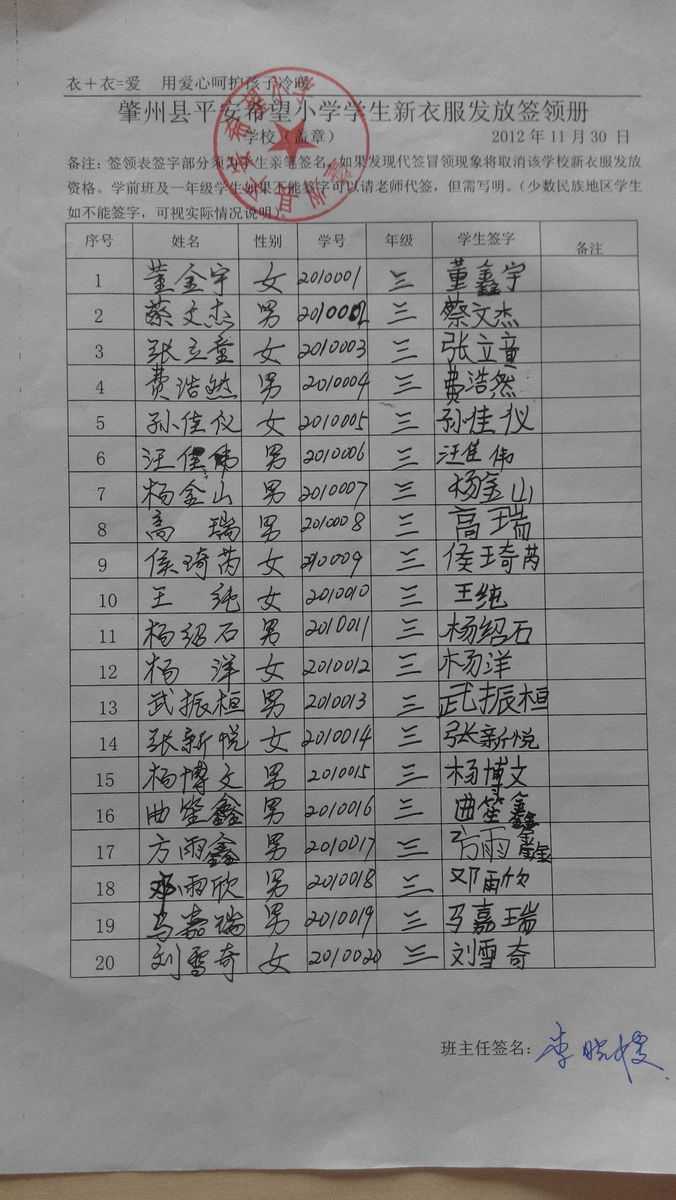 衣+衣=爱 用爱心呵护孩子冷暖
肇州县平安希望小学学生新衣服发放签领册
学校(盖章) 2012年11月30日
备注:签领表签字部分须为学生亲笔签名,如果发现代签冒领现象将取消该学校新衣服发放
资格。学前班及一年级学生如果不能签字可以请老师代签,但需写明。(少数民族地区学生
如不能签字,可视实际情况说明)。
序号 姓名 性别 学号 年级 学生签字 备注
1 董金宇 女 2010001 三 董鑫宇
2 蔡文杰 男 2010002 三 蔡文杰
3 张立童 女 2010003 三 张立童
4 费浩然 男 2010004 三 费浩然
5 孙佳仪 女 2010005 三 孙佳仪
6 汪佳伟 男 2010006 三 汪佳伟
7 杨金山 男 2010007 三 杨金山
8 高瑞 男 2010008 三 高瑞
9 侯琦芮 女 2010009 三 侯琦芮
10 王纯 女 2010010 三 王纯
11 杨绍石 男 2010011 三 杨绍石
12 杨洋 女 2010012 三 杨洋
13 武振桓 男 2010013 三 武振桓
14 张新悦 女 2010014 三 张新悦
15 杨博文 男 2010015 三 杨博文
16 曲笙鑫 男 2010016 三 曲笙鑫
17 方雨鑫 男 2010017 三 方雨鑫
18 邓雨欣 男 2010018 三 邓雨欣
19 马嘉瑞 男 2010019 三 马嘉瑞
20 刘雪奇 女 2010020 三 刘雪奇
班主任签名:李